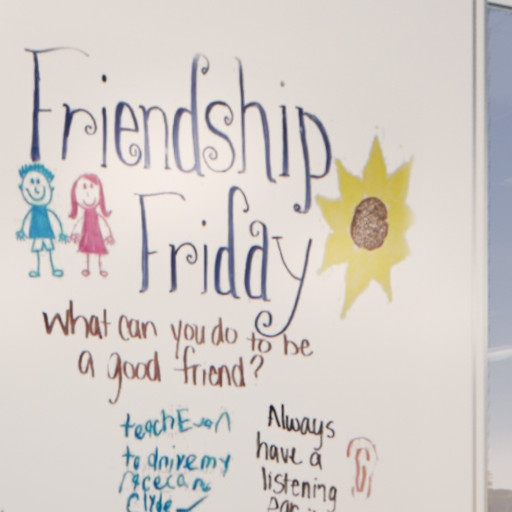 Friendship
Friday
what can you do to be
a good friend?
teach Evan
to drive my
racecar
Clyde
Always
have a
listening